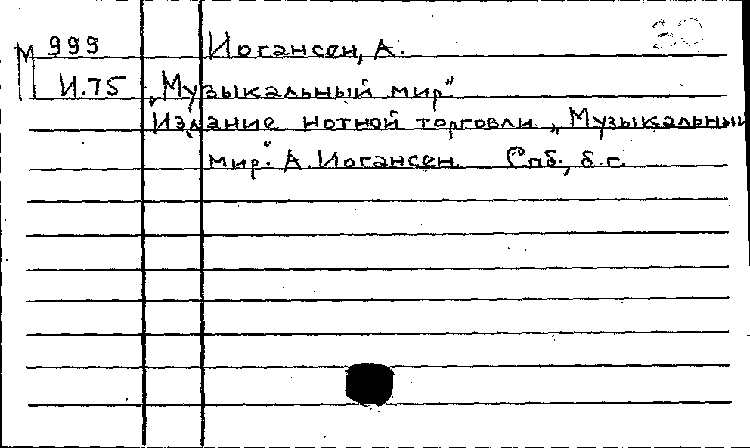 М 999 Иогансен, А. 30
И.75 „Музыкальный мир"
Издание нотной торговли „Музыкальный
мир". А. Иогансен. Спб., б.г.